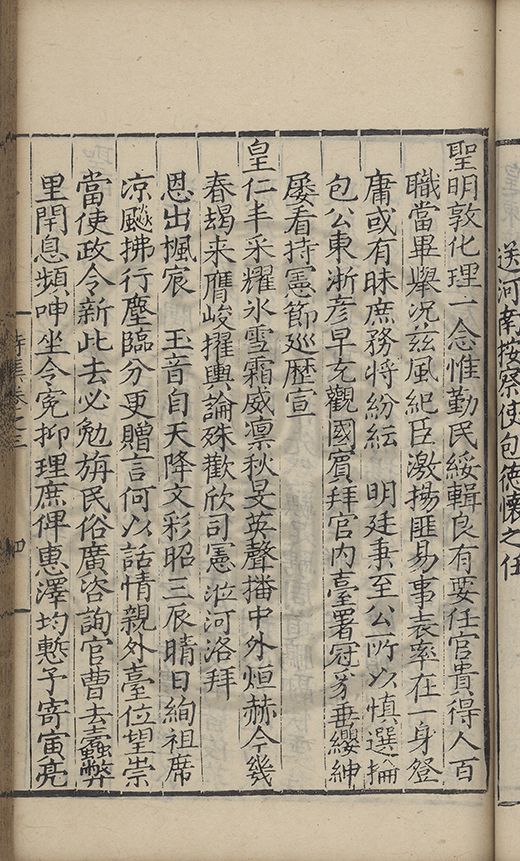 送河南按察使包德懷之任
聖明敦化理一念惟勤民綏輯良有要任官貴得人百
職當畢舉况兹風紀臣激揚匪易事表率在一身登
庸或有昧庶務將紛紜　明廷秉至公所以慎選掄
包公東浙彦早充觀國賓拜官内臺署冠豸垂纓紳
屡看持憲節廵歷宣
皇仁丰采耀氷雪霜威凛秋旻英聲播中外烜赫今幾
春朅来膺峻擢輿論殊歡欣司憲涖河洛拜
恩出楓宸　玉音自天降文彩昭三辰晴日絢祖席
凉飈拂行塵臨分更贈言何以話情親外臺位望崇
當使政令新此去必勉旃民俗廣咨詢官曹去蠹弊
里閈息頻呻坐令寃抑理庶俾惠澤均慙予寄寅亮
詩集卷之三　四